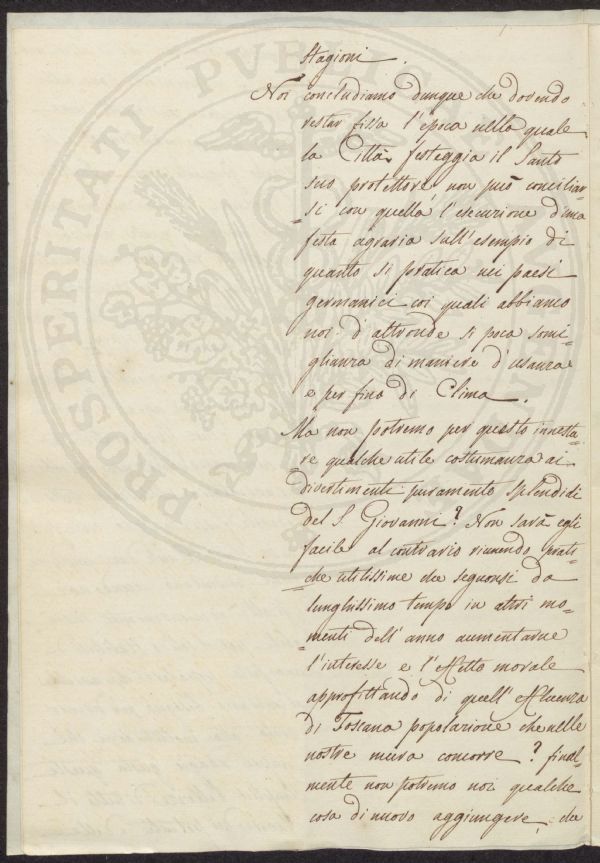 Stagioni.
Noi concludiamo dunque che dovendo
restar fissa l'epoca nella quale
la Città festeggia il Santo
suo protettore, non può conciliar=
=si con quella l'esecuzione d'una
festa agraria sull'esempio di
quanto si pratica nei paesi
germanici coi quali abbiamo
noi d'altronde si poca somi=
glianza di maniere d'usanza
e per fino di Clima.
Ma non potremo per questo innesta=
=re qualche utile costumanza ai
divertimenti puramente splendidi
del S. Giovanni? Non sarà egli
facile al contrario riunendo prati=
=che utilissime che seguonsi da
lunghissimo tempo in altri mo=
=menti dell'anno aumentarne
l'interesse e l'effetto morale
approfittando di quell'affluenza
di Toscana popolazione che nelle
nostre mura concorre? final=
=mente non potremo noi qualche
cosa di nuovo aggiungere, che
PROSPERITATI PVBLICAE